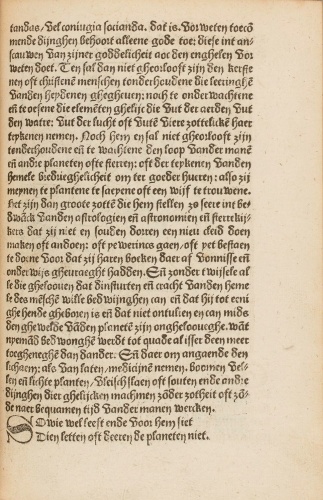 tandas/ vel coniugia socianda. dat is. Vor weten toecō
mende dijnghen behoort alleene gode toe: diese int an⸗
scauwen van zijner goddelicheit aor den enghelen vor
weten doet. Ten sal dan niet gheorlooft zijn den kerste
nen oft christenē menschen tonderhoudene die leeringhē
vanden heydenen ghegheven: noch te onderwachtene
eñ te oefene die elemētē ghelijc die vut der aerden vut
den watre: vut der lucht oft vutē viere zottelickē haer
teykenen nemen. Noch hem en sal niet gheorlooft zijn
tonderhoudene eñ te wachtene den loop vander manē
eñ andre planeten ofte sterren: oft der teykenen vanden
hemele bedrieghelicheit om ter goeder hueren: also zij
meynen te plantene te saeyene oft een wijf te trouwene.
Het zijn dan groote zottē die hem stellen zo seere int be
dwāck vanden astrologien eñ astronomien eñ sterrekij⸗
kers dat zij niet en souden dorren een nieu cleid doen
maken oft andoen: oft yewerincs gaen/oft yet bestaen
te doene voor dat zij haren bocken daer af vonnisse eñ
onderwijs ghevraeght hadden. Eñ zonder twijfele al
se die ghelooven dat dinfluten eñ cracht vanden heme
lse des mēschē wille bedwijnghen can eñ dat hij tot eeni
ghe hende gheboren is eñ dat niet ontulien en can mids
den ghewelde vādēn planetē zijn ongheloovegh. wāt
nyemāds bedwonghē werdt tot quade al isser deen meer
toegheneghē dan dander. Eñ daer om angaende den
lichaem: als van laten/medicijnē nemen. boomen vel⸗
len eñ lichte planten/vleisch slaen oft souten ende andre
dijnghen dier ghelijcken machmen zōder zotheit oft zō⸗
de naer bequamen tijd vander manen wercken.
SO wie wel leeft ende voor hem siet
Dien letten oft deeren de planeten niet.